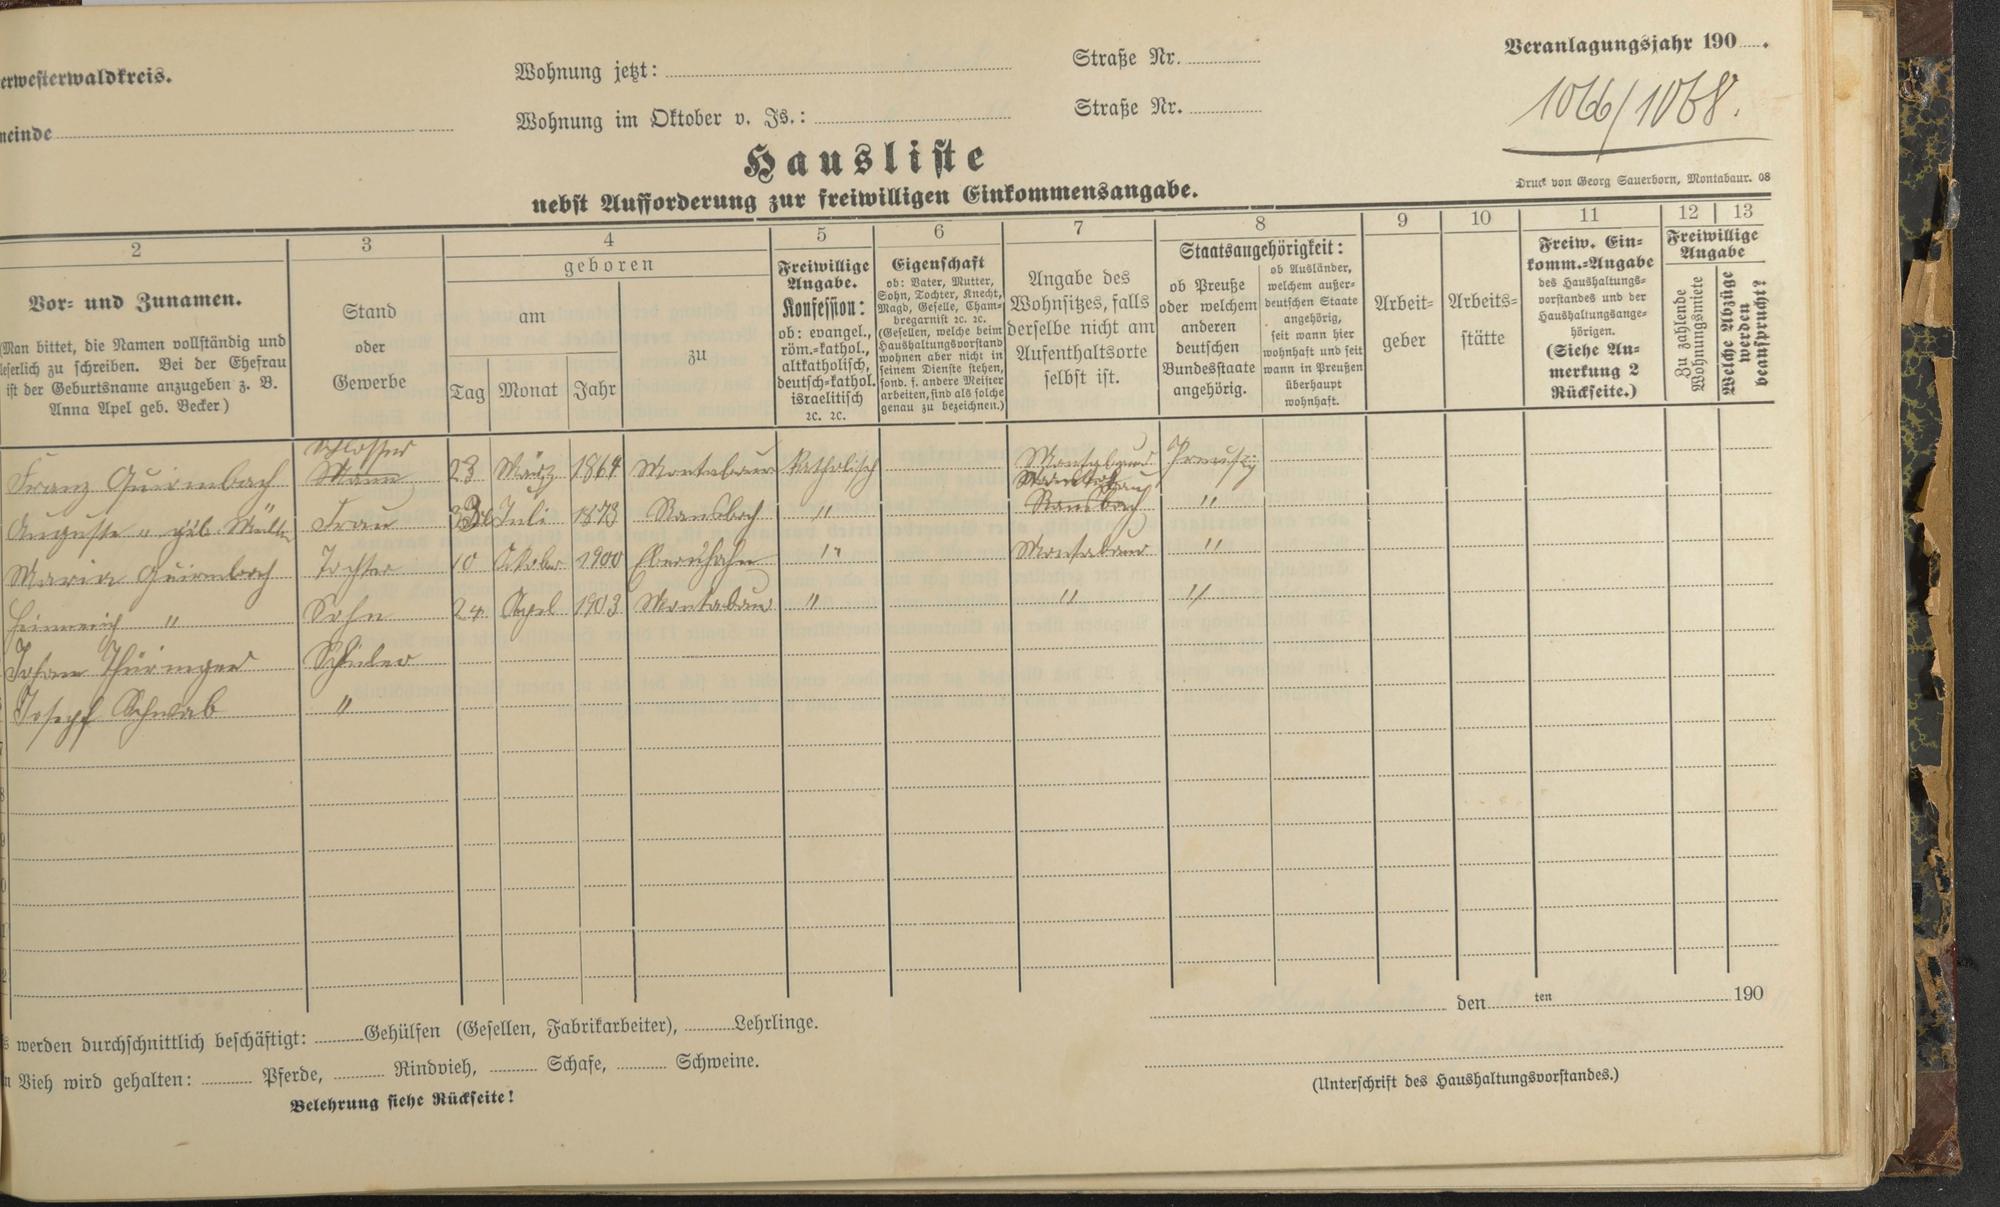 erwesterwaldkreis.
Wohnung jetzt: Straße Nr.
Veranlagungsjahr 190 .
meinde
Wohnung im Oktober v. Js.: Straße Nr.
1066/1068.
Hausliste
nebst Aufforderung zur freiwilligen Einkommensangabe.
Druck von Georg Sauerborn, Montabaur. 08
2 3 4 5 6 7 8 9 10 11 12 13
Vor- und Zunamen.
(Man bittet, die Namen vollständig und
leserlich zu schreiben. Bei der Ehefrau
ist der Geburtsname anzugeben z. B.
Anna Apel geb. Becker)
Stand
oder
Gewerbe
geboren
am
Tag Monat Jahr
zu
Freiwillige
Angabe.
Konfession:
ob: evangel.,
röm.-kathol.,
altkatholisch,
deutsch-kathol.
israelitisch
ꝛc. ꝛc.
Eigenschaft
ob: Vater, Mutter,
Sohn, Tochter, Knecht,
Magd, Geselle, Cham-
bregarnist ꝛc. ꝛc.
(Gesellen, welche beim
Haushaltungsvorstand
wohnen aber nicht in
seinem Dienste stehen,
sond. f. andere Meister
arbeiten, sind als solche
genau zu bezeichnen.)
Angabe des
Wohnsitzes, falls
derselbe nicht am
Aufenthaltsorte
selbst ist.
Staatsangehörigkeit:
ob Preuße
oder welchem
anderen
deutschen
Bundesstaate
angehörig.
ob Ausländer,
welchem außer-
deutschen Staate
angehörig,
seit wann hier
wohnhaft und seit
wann in Preußen
überhaupt
wohnhaft.
Arbeit-
geber
Arbeits-
stätte
Freiw. Ein-
komm.-Angabe
des Haushaltungs-
vorstandes und der
Haushaltungsange-
hörigen.
(Siehe An-
merkung 2
Rückseite.)
Freiwillige
Angabe
Zu zahlende
Wohnungsmiete
Welche Abzüge
werden
beansprucht?
Schlosser
Franz Quirmbach Mann 23 März 1864 Montabaur Katholisch Montabaur
Auguste " geb. Frau Juli 1873 Ransbach " Ransbach "
Maria Quirmbach Tochter 10 Oktober 1900 Ebernhahn " Montabaur "
Heinrich " Sohn 24. April 1903 Montabaur " " "
Johann Thüringer Schüler
Joseph Schwab "
den ten 190
s werden durchschnittlich beschäftigt: Gehülfen (Gesellen, Fabrikarbeiter), Lehrlinge.
n Vieh wird gehalten: Pferde, Rindvieh, Schafe, Schweine.
(Unterschrift des Haushaltungsvorstandes.)
Belehrung siehe Rückseite!